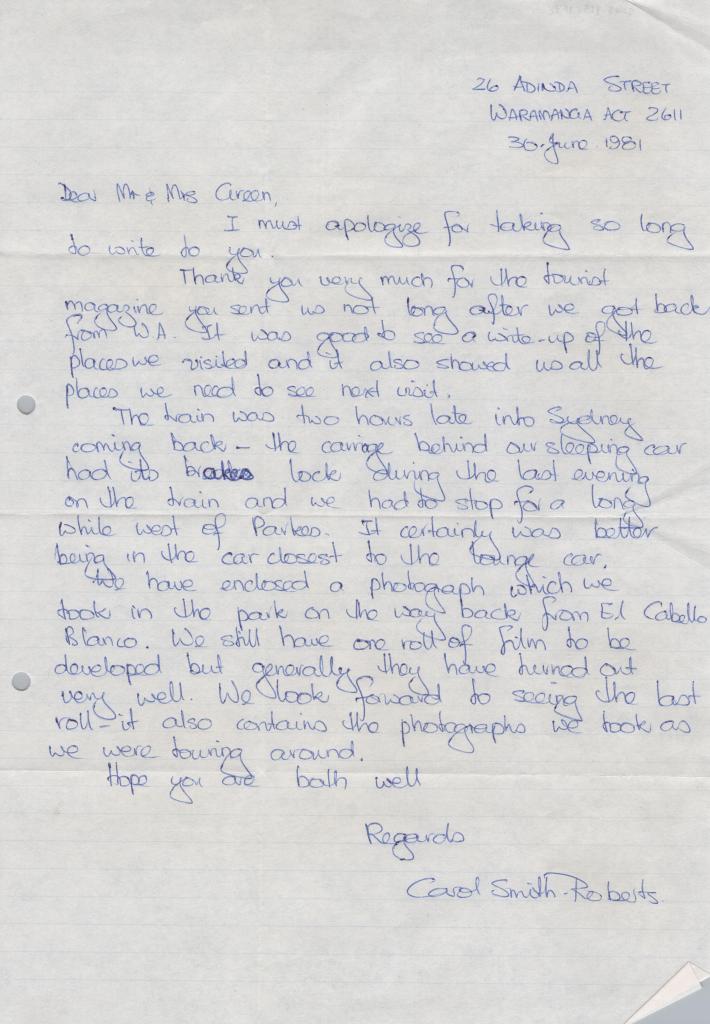 26 ADINDA STREET
WARAMANGA ACT 2611
30 June 1981
Dear Mr & Mrs Green,
I must apologize for taking so long
to write to you.
Thank you very much for the tourist
magazine you sent us not long after we got back
from W.A. It was good to see a write-up of the
places we visited and it also showed us all the
places we need to see next visit.
The train was two hours late into Sydney
coming back - the carriage behind our sleeping car
had its brakes lock during the last evening
on the train and we had to stop for a long
while west of Parkes. It certainly was better
being in the car closest to the lounge car.
We have enclosed a photograph which we
took in the park on the way back from El Cabello
Blanco. We still have one roll of film to be
developed but generally they have turned out
very well. We look forward to seeing the last
roll - it also contains the photographs we took as
we were touring around.
Hope you are both well
Regards
Carol Smith-Roberts.